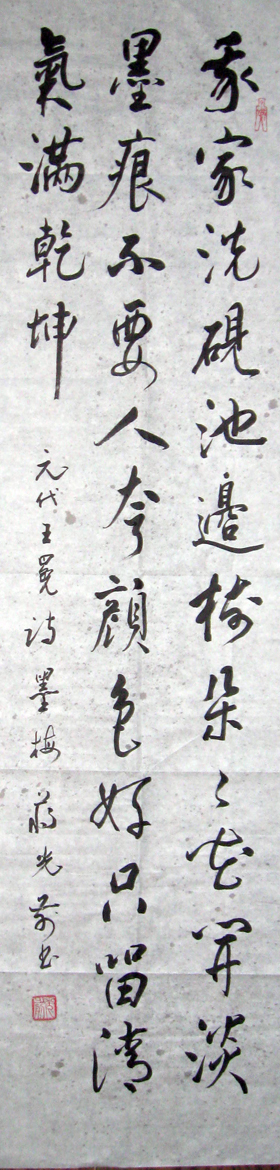 我家洗硯池邊樹朵〻花開淡
墨痕不要人夸顔色好只留清
氣滿乾坤
元代王冕詩墨梅 蔣光前书